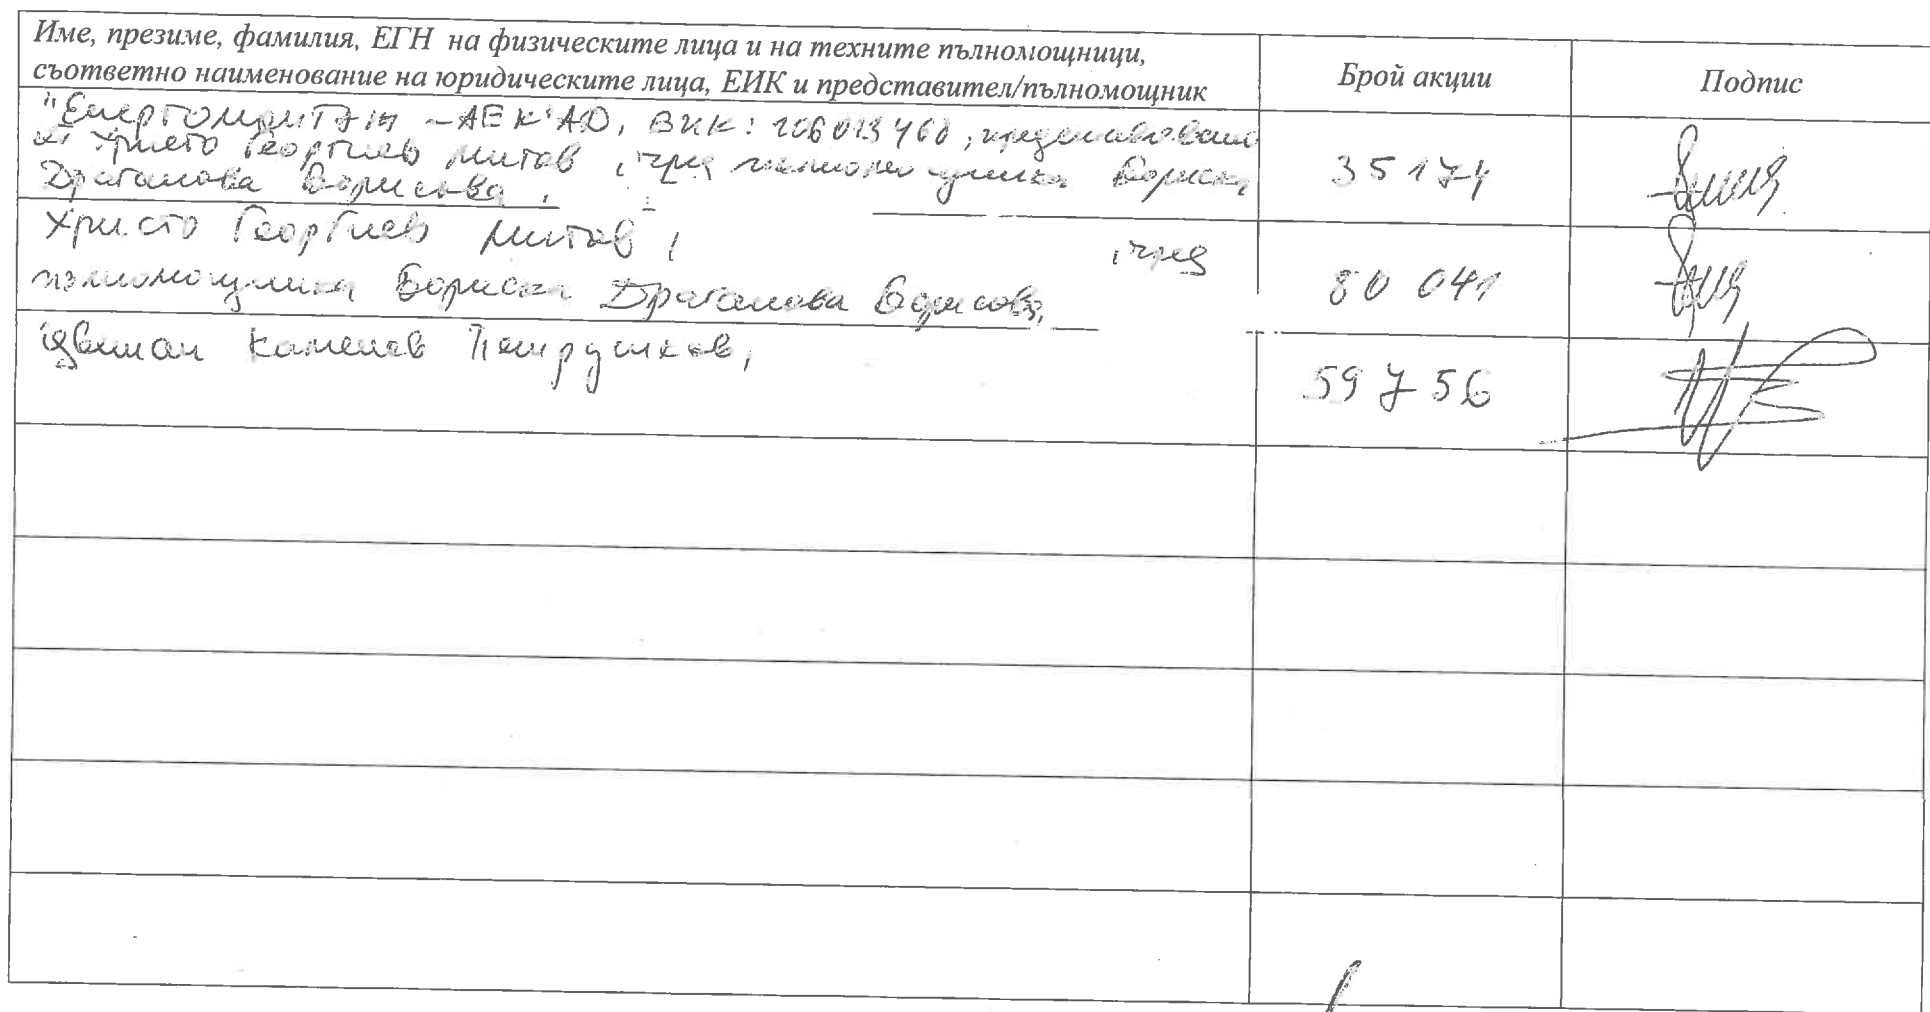 Име, презиме, фамилия, ЕГН на физическите лица и на техните пълномощници,
съответно наименование на юридическите лица, ЕИК и представител/пълномощник
Брой акции
Подпис
-АЕК" АД, ЕИК:
Христо Георгиев Митов, чрез пълномощника Бориска
Драганова Борисова,
35174
Христо Георгиев Митов, , чрез
пълномощника Бориска Драганова Борисова,
80 041
Цветан Каменов Петрушков,
59 756